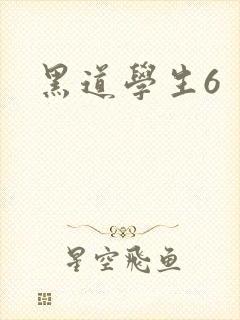 黑道學生6
星空飛魚